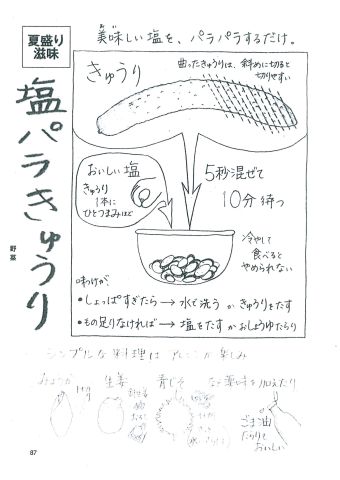 夏盛り
滋味
塩パラきゅうり
野菜
美味しい塩を、パラパラするだけ。
きゅうり
曲ったきゅうりは、斜めに切ると
切りやすい
おいしい塩
きゅうり
1本に
ひとつまみほど
5秒混ぜて
10分待つ
冷やして
食べると
やめられない
味わけが、
・しょっぱすぎたら→水で洗うかきゅうりをたす
・もの足りなければ→塩をたすかおしょうゆたらり
シンプルな料理は
楽しみ
みょうが
生姜
青じそ
など薬味を加えたり
ごま油
たらりで
おいしい
87